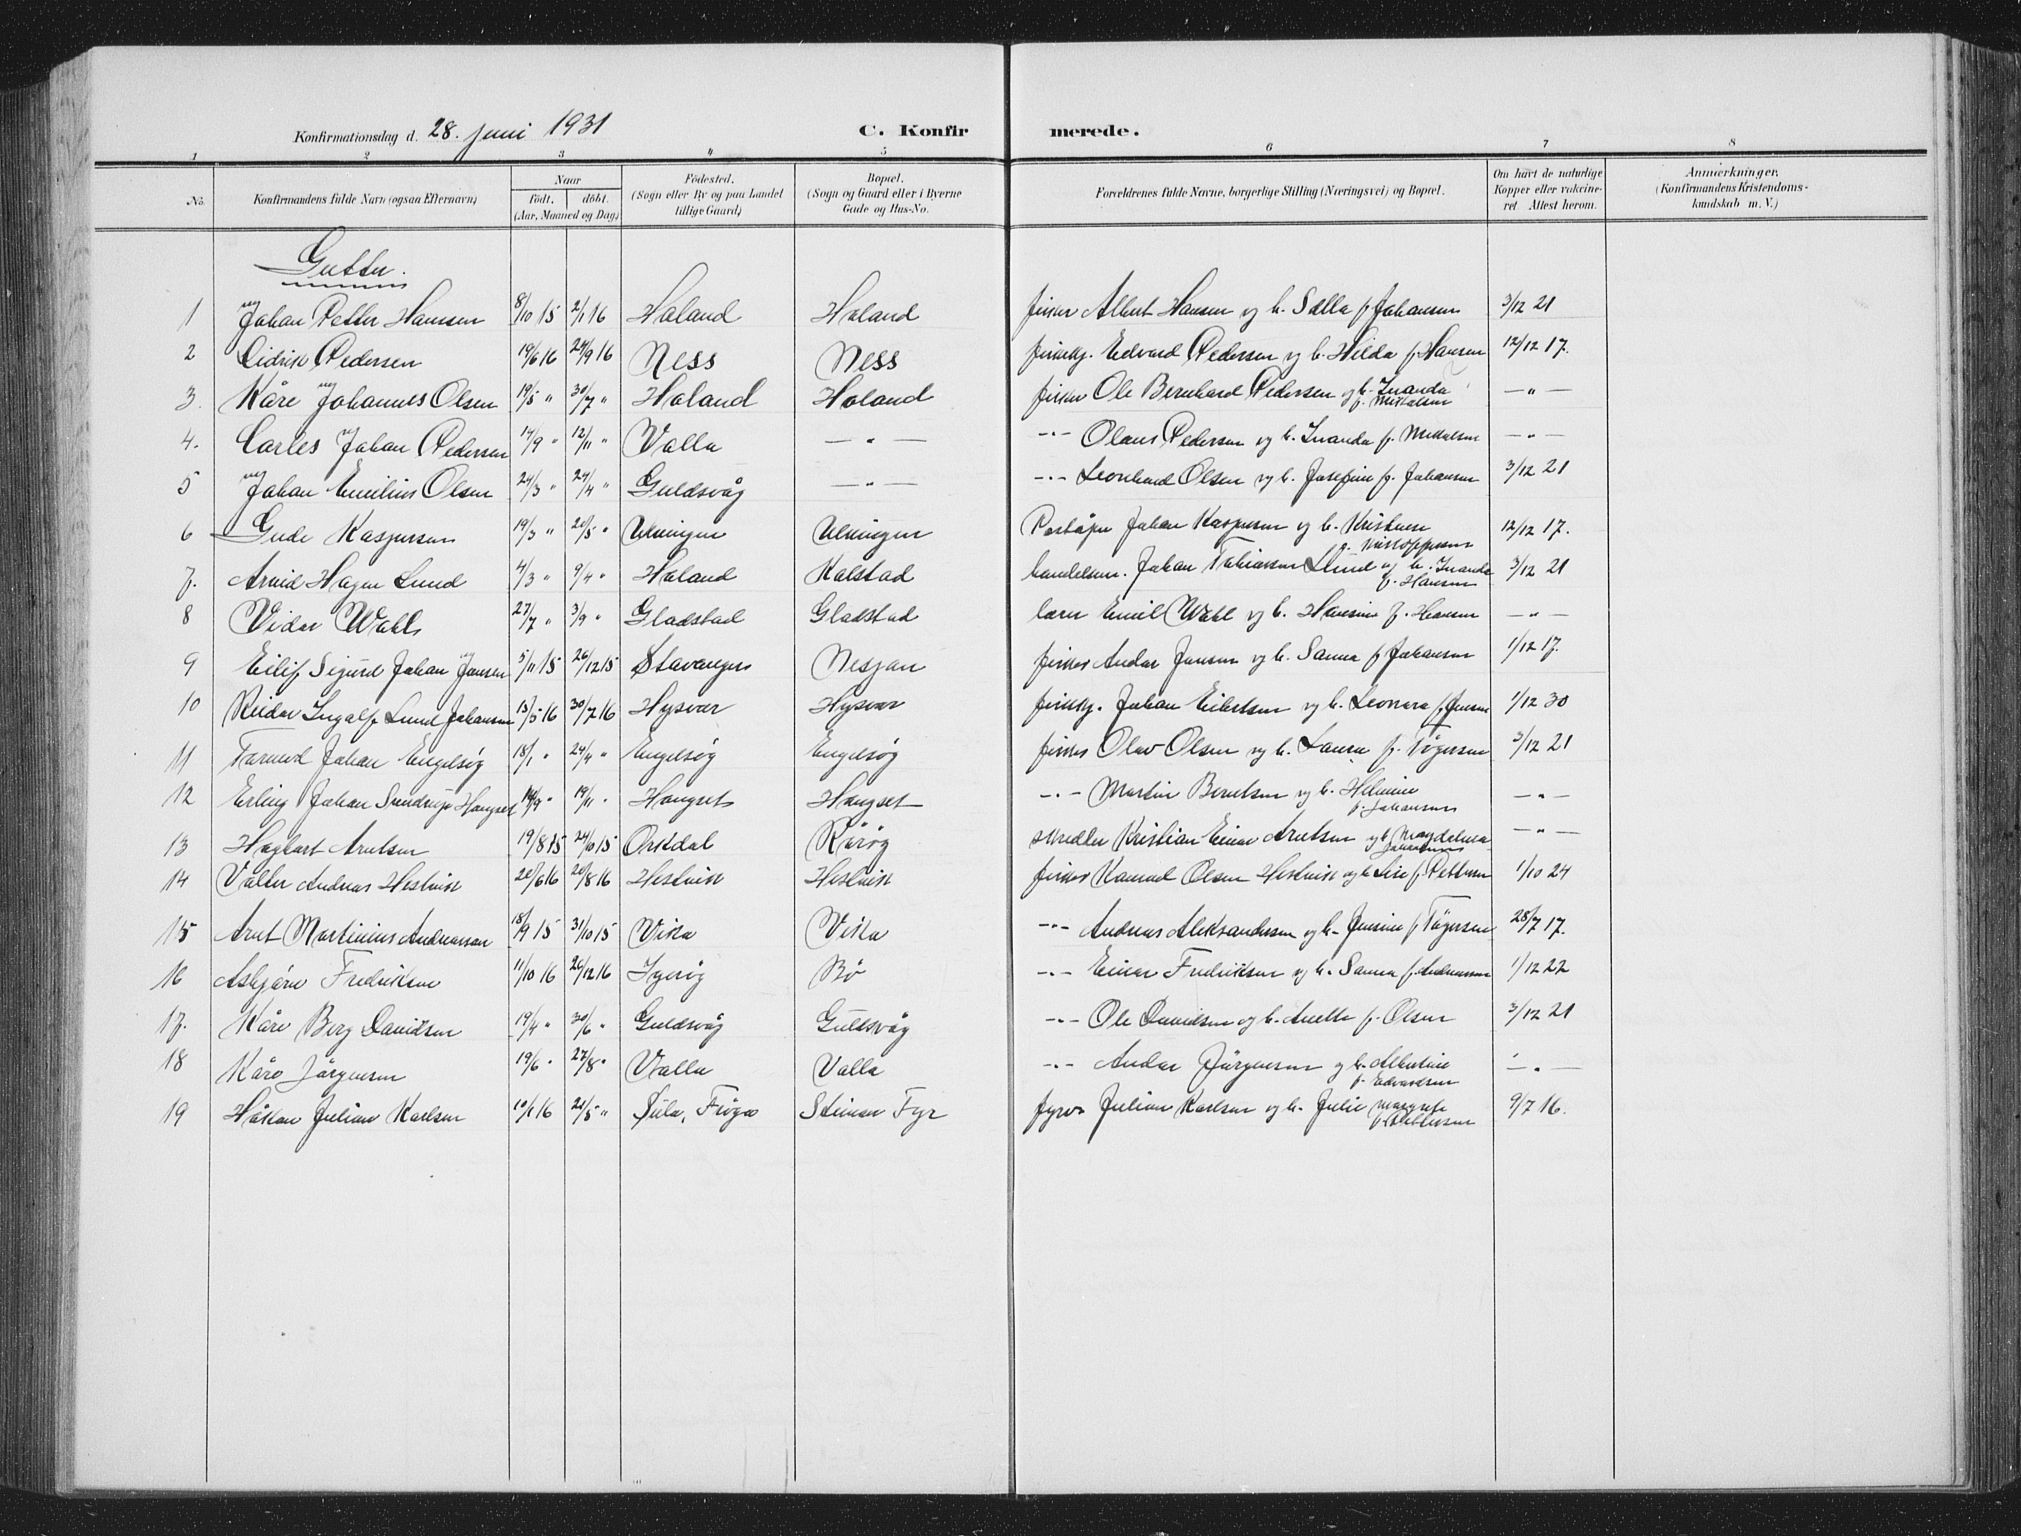 Konfirmationsdag d. 28. juni 1931 C. Konfir merede.
1 2 3 4 5 6 7 8
No. Konfirmandens fulde Navn (ogsaa Efternavn) Naar født. døbt. (Aar, Maaned og Dag) Fødested. (Sogn eller By og paa Landet tillige Gaard) Bopæl. (Sogn og Gaard eller i Byerne Gade og Hus-No. Forældrenes fulde Navne, borgerlige Stilling (Næringsvei) og Bopæl. Om havt de naturlige Kopper eller vakcineret. Attest herom. Anmærkninger. (Konfirmandens Kristendomskundskab m. V.)
Gutter.
1 Johan Petter Hansen 8/10 15 2/1 16 Holand Holand fisker Albert Hansen og h. Salla f. Johansen 3/12 21
2 Didrik Pedersen 19/6 16 24/9 16 Ness Ness Edvard Pedersen og h. Hilda f. Hansen 12/12 17.
3. Kåre Johannes Olsen 19/5 " 30/7 " Holand Holand fisker Ole Bernhard Pedersen og h. Inanda f. Mikalsen — " —
4. Carles Johan Pedersen 14/9 " 12/11 " Valla — " — - " - Olaus Pedersen og h. Inanda f. Mikalsen — " —
5 Johan Emilius Olsen 24/3 " 24/4 " Guldsvåg — " — - " - Leonhard Olsen og h. Josefine f. Johansen 3/12 21
6 Gude Kaspersen 19/3 " 20/5 " Ulvingen Ulvingen Poståpn Johan Kaspersen og h. Kristense f. Kristoffersen 12/12 17.
7. Arvid Hagen Lund 4/3 " 9/4 " Holand Kalstad handelsm. Johan Tobiassen Lund og h. Inanda f. Hansen 3/12 21
8 Vidar Wahl 27/7 " 3/9 " Gladstad Gladstad lærer Emil Wahl og h. Hansine f. Hansen — " —
9 Eilif Sigurd Johan Jansen 5/11 15 26/12 15 Stavanger Nesjan fisker Andor Jansen og h. Sanna f. Johansen 1/12 17.
10 Reidar Ingolf Lund Johansen 13/5 16 30/7 16 Hysvær Hysvær Johan Eilertsen og h. Leonora f. Jensen 1/12 30
11 Tormod Johan Engelsøg 18/1 " 24/4 " Engelsøg Engelsøg fisker Olav Olsen og h. Laura f. Tøgersen 3/12 21
12 Erling Johan Svendrup Hongset 14/9 " 19/11 " Hongset Hongset - " - Martin Berntsen og h. Helmine f. Johansen — " —
13 Hagbart Arntsen 19/8 15 24/10 15 Orkdal Rårøg skredder Kristian Einar Arntsen og h. Magdalena Johansen — " —
14 Valter Andreas Hestvik 20/6 16 20/8 16 Hestvik Hestvik fisker Konrad Olsen Hestvik og h. Lise f. Pettersen 1/10 24
15 Arnt Martinius Andreassen 18/9 15 31/10 15 Vika Vika - " - Andreas Aleksandersen og h. Jensine f. Tøgersen 28/7 17.
16 Asbjørn Fredriksen 11/10 16 26/12 16 Igerøg Bø - " - Einar Fredriksen og h. Sanna f. Andreassen 1/12 22
17. Kåre Berg Davidsen 19/4 " 30/6 " Guldsvåg Guldsvåg - " - Ole Davidsen og h. Anette f. Olsen 3/12 21
18 Kåre Jørgensen 19/6 " 27/8 " Valla Valla - " - Andor Jørgensen og h. Albertine f. Edvardsen — " —
19 Håkon Julian Karlsen 10/1 16 21/5 " Sula, Frøya Steinan Fyr fyrv. Julian Karlsen og h. Julie Margrete f. Pettersen 9/7 16.